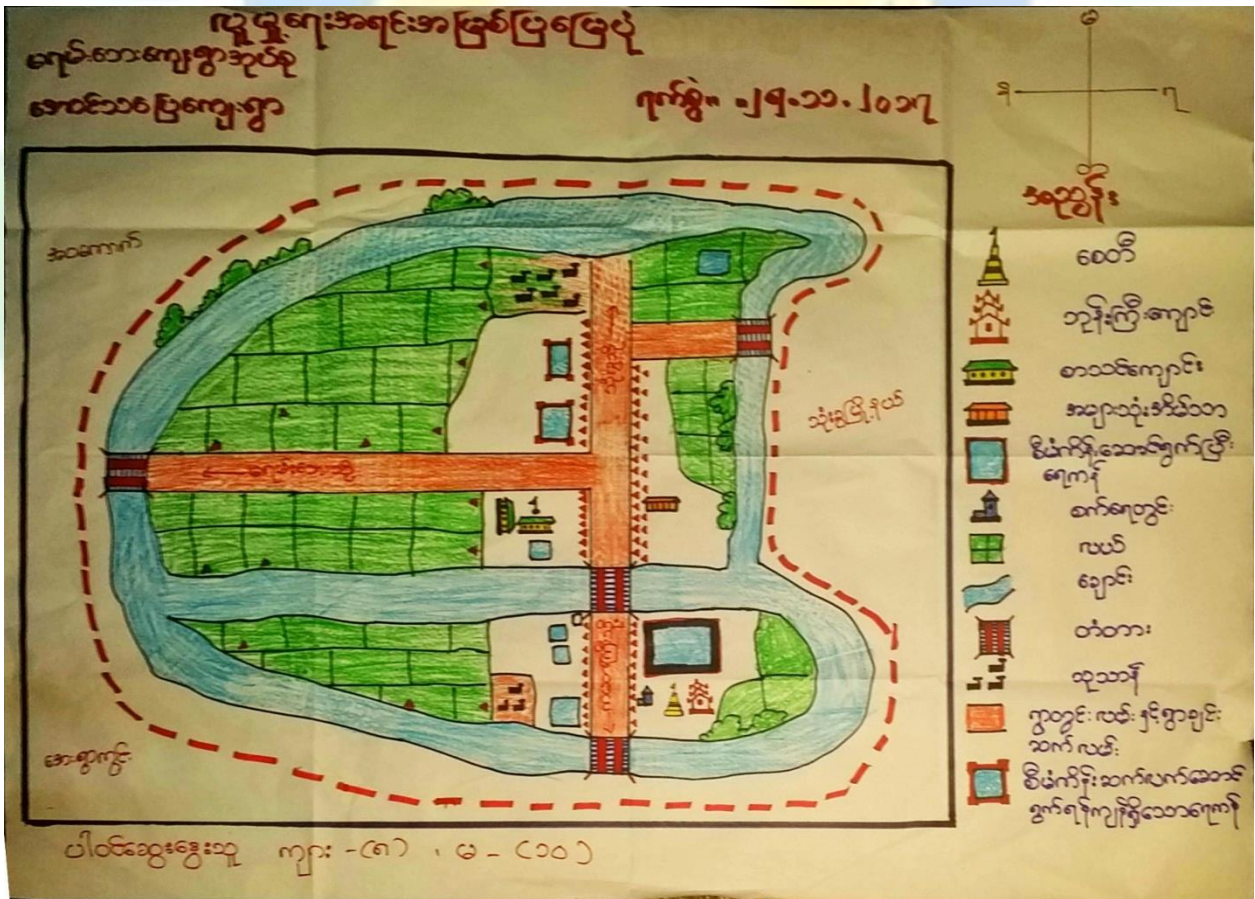 လူမှုရေးအရင်းအမြစ်ပြမြေပုံ
ကျေးရွာအုပ်စု
အောင်သပြေကျေးရွာ
ရက်စွဲ။ ။၂၅.၁၁.၂၀၁၇
မ
န
ရ
အညွှန်း
စေတီ
ဘုန်းကြီးကျောင်း
စာသင်ကျောင်း
အများသုံးအိမ်သာ
စီမံကိန်းဆောင်ရွက်ပြီး
ရေကန်
စက်ရေတွင်း
လယ်
ချောင်း
တံတား
သုသာန်
ရွာတွင်းလမ်းနှင့်ရွာချင်း
ဆက်လမ်း
စီမံကိန်းဆက်လက်ဆောင်
ရွက်ရန်ကျန်ရှိသောရေကန်
သုံးခွမြို့နယ်
ပါဝင်ဆွေးနွေးသူ ကျား-(၈)၊ မ-(၁၀)